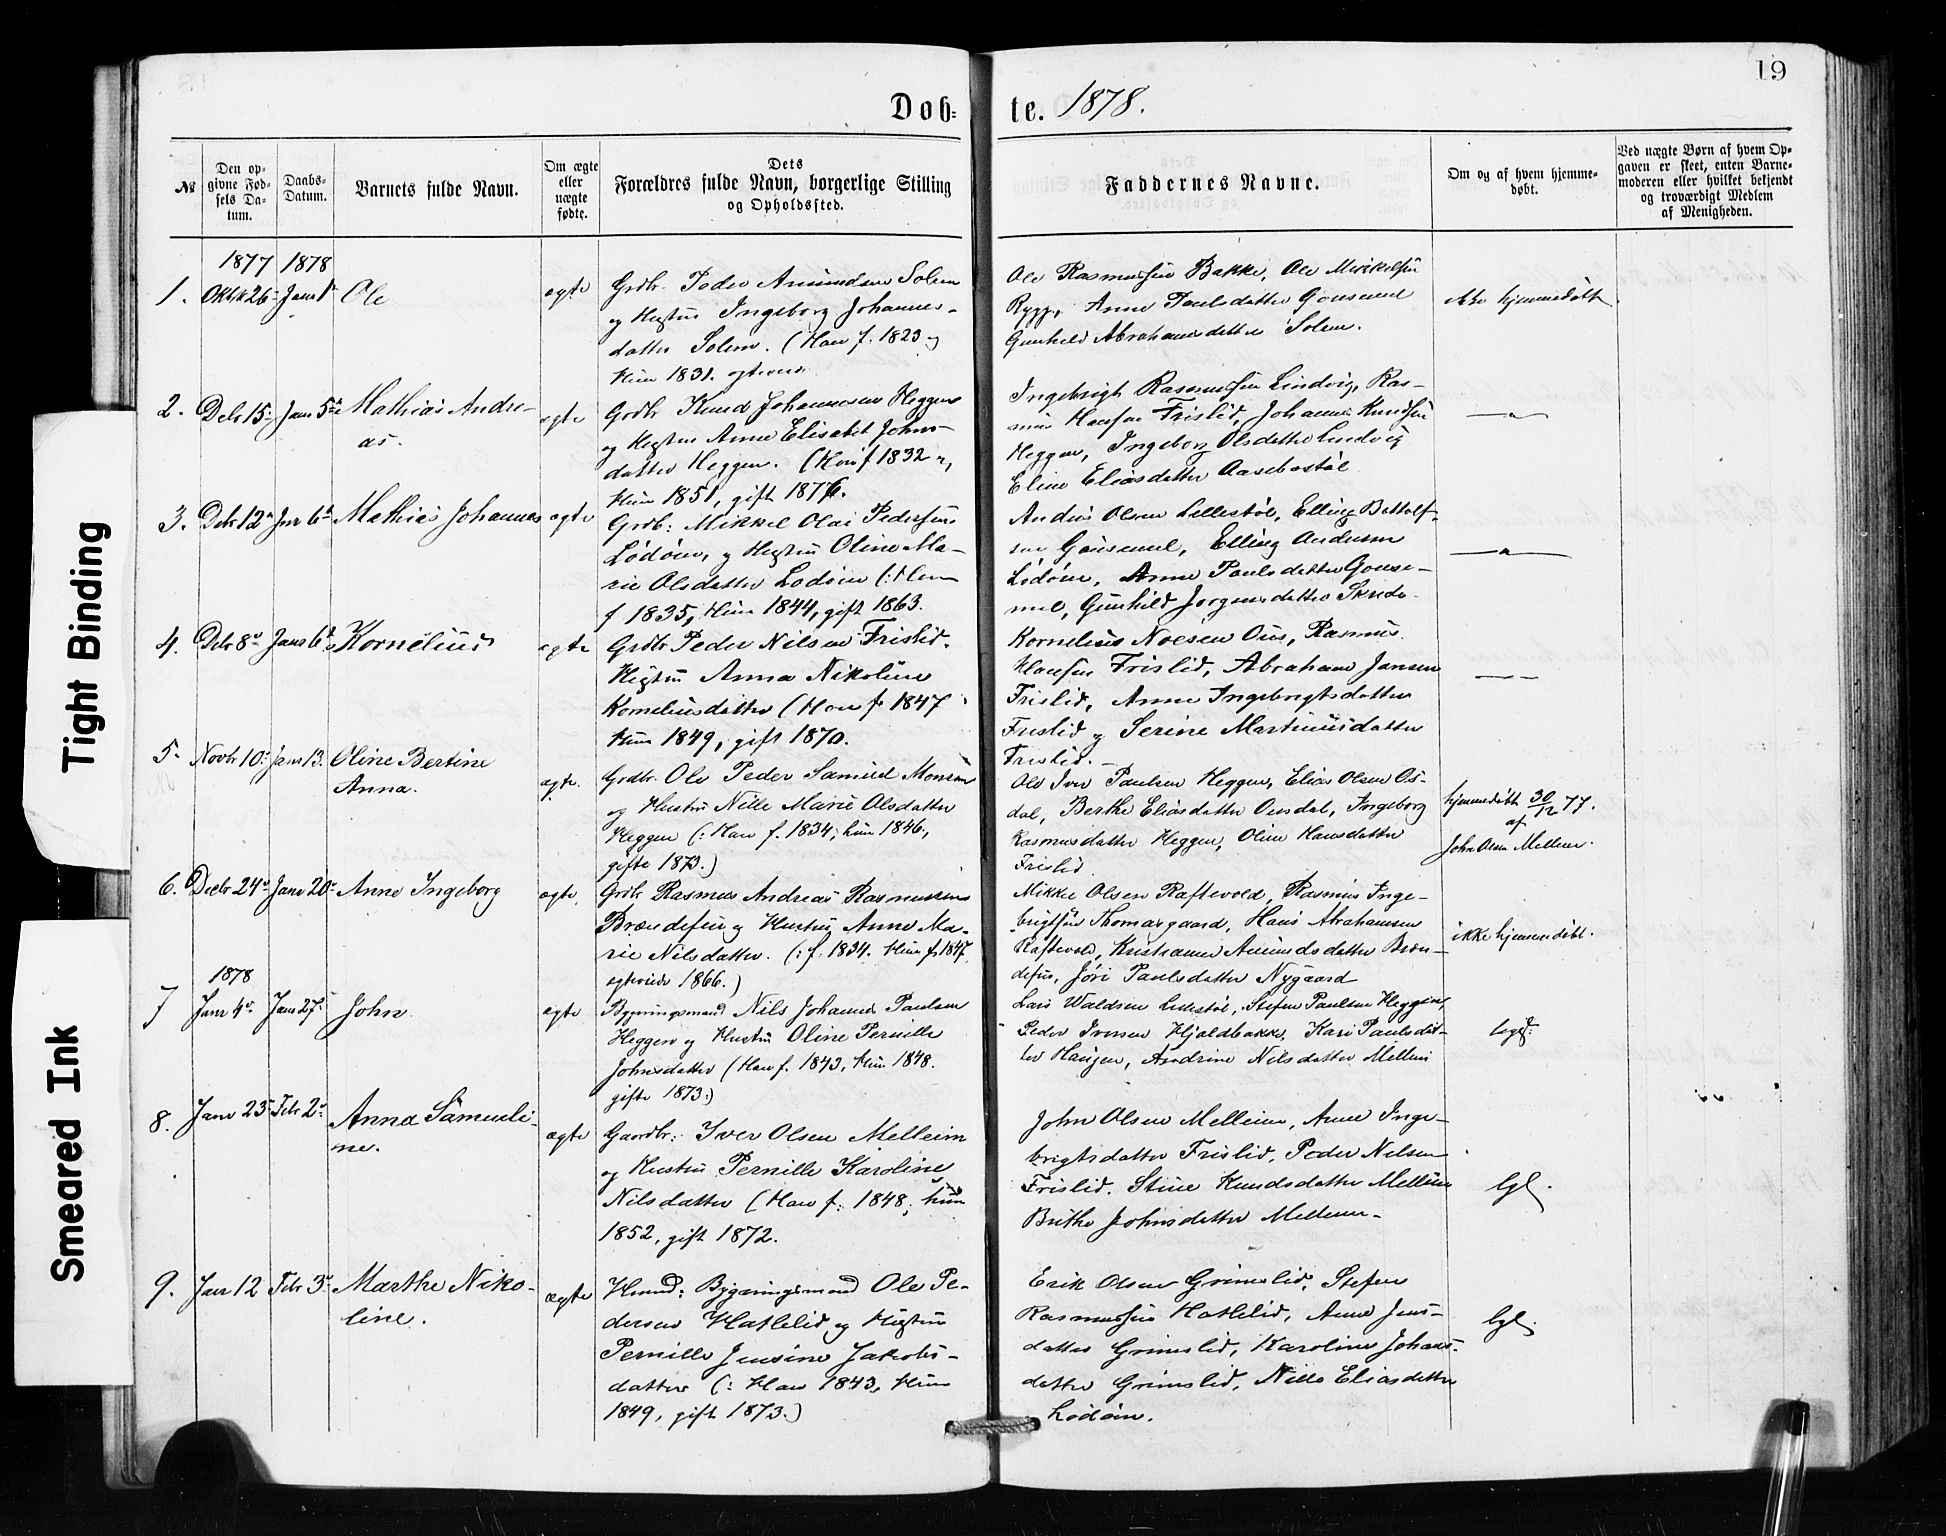 19
Døb-
te. 1878.
№
Den op-
givne Fød-
sels Da-
tum.
Daabs-
Datum.
Barnets fulde Navn.
Om ægte
eller
uægte
fødte.
Dets
Forældres fulde Navn, borgerlige Stilling
og Opholdssted.
Faddernes Navne.
Om og af hvem hjemme-
døbt.
Ved uægte Børn af hvem Op-
gaven er skeet, enten Barne-
moderen eller hvilket bekjendt
og troværdigt Medlem
af Menigheden.
1877 1878
1. Oktbr 26 Janr 1 Ole
ægte
Grdbr. Peder Amundsen Solem
og Hustru Ingeborg Johannes-
datter Solem. (Han f. 1823 og
Hun 1831.
Ole Rasmussen Bakke, Ole Mikkelsen
Rygg, Anne Paulsdatter Gousemel
Gunhild Abrahamsdatter Solem.
ikke hjemmedøbt
2. Debr 15 Janr 5te Mathias Andre-
as.
ægte
Grdbr Knud Johannesen Heggen
og Hustru Anne Elisabet Johns-
datter Heggen. (Han f 1832 og
Hun 1851, gift 1876.
Ingebrigt Rasmussen Lindvig, Ras-
mus Hansen Frislid, Johannes Knudsen
Heggen, Ingeborg Olsdatter Lindvig
Eline Eliasdatter Aasebøstøl
—"—
3. Debr 12 Janr 6te Mathias Johannes
ægte
Grdb: Mikkel Olai Pedersen
Lødøen, og Hustru Oline Ma-
rie Olsdatter Lødøen (: Han
f 1835, Hun 1844, gift 1863.
Anders Olsen Lillestøl, Elling Bottolf-
sen Gousemel, Elling Andersen
Lødøen, Anne Paulsdatter Gouse-
mel, Gunhild Jørgensdatter Skrede
—"—
4. Debr 8de Janr 6te Kornelius
ægte
Grdbr Peder Nilsen Frislid.
Hustru Anna Nikoline
Korneliusdatter (Han f. 1847
Hun 1849, gift 1870.
Kornelius Noesen Ous, Rasmus
Hansen Frislid, Abraham Jansen
Frislid, Anne Ingebrigtsdatter
Frislid og Serine Martinusdatter
Frislid.
—"—
5. Novbr 10 Janr 13. Oline Bertine
Anna.
ægte.
Grdbr. Ole Peder Samuel Monsen
og Hustru Nille Marie Olsdatter
Heggen (: Han f. 1834, hun 1846,
gifte 1873.)
Ole Iver Paulsen Heggen, Elias Olsen Os-
dal, Berthe Eliasdatter Ousdal, Ingeborg
Rasmusdatter Heggen, Oline Hansdatter
Frislid
hjemmedøbt 30/12 77.
af
John Olsen Melleim.
6. Decbr 24de Janr 20de Anne Ingeborg
ægte.
Grdbr Rasmus Andreas Rasmussen
Brændefur og Hustru Anne Ma-
rie Nilsdatter. (: f. 1834. Hun f 1847,
egteviede 1866.)
Mikkel Olsen Raftevold, Rasmus Inge-
brigtsen Thomasgaard, Hans Abrahamsen
Raftevold, Kristianne Amundsdatter Bræn-
defur, Jøri Paulsdatter Nygaard
ikke hjemmedøbt.
1878
7 Janr 4de Janr 27de John
ægte
Bygningsmand Nils Johannes Paulsen
Heggen og Hustru Oline Pernille
Johnsdatter (Han f. 1843, Hun 1848.
gifte 1873.)
Lars Waldsen Lillestøl, Stefen Paulsen Heggen,
Peder Iversen Hjaldbakke, Kari Paulsdat-
ter Haugen, Andrine Nilsdatter Melleim
8. Janr 23 Febr 2den Anna Samueli-
ne.
ægte
Gaardbr: Iver Olsen Melleim
og Hustru Pernille Karoline
Nilsdatter (Han f: 1848, hun
1852, gift 1872.
John Olsen Melleim, Anne Inge-
brigtsdatter Frislid, Peder Nilsen
Frislid. Stine Knudsdatter Melleim
Brithe Johnsdatter Melleim-
9. Janr 12 Febr 3die Marthe Niko-
line.
ægte
Husmd: Bygningsmand Ole Pe-
dersen Hatlelid og Hustru
Pernille Jensine Jakobs-
datter (: Han 1843, Hun
1849, gift 1873.)
Erik Olsen Grimslid, Stefen
Rasmussen Hatlelid, Anne Jens-
datter Grimslid, Karoline Johans-
datter Grimslid, Nille Eliasdatter
Lødøen.
Tight Binding
Smeared Ink